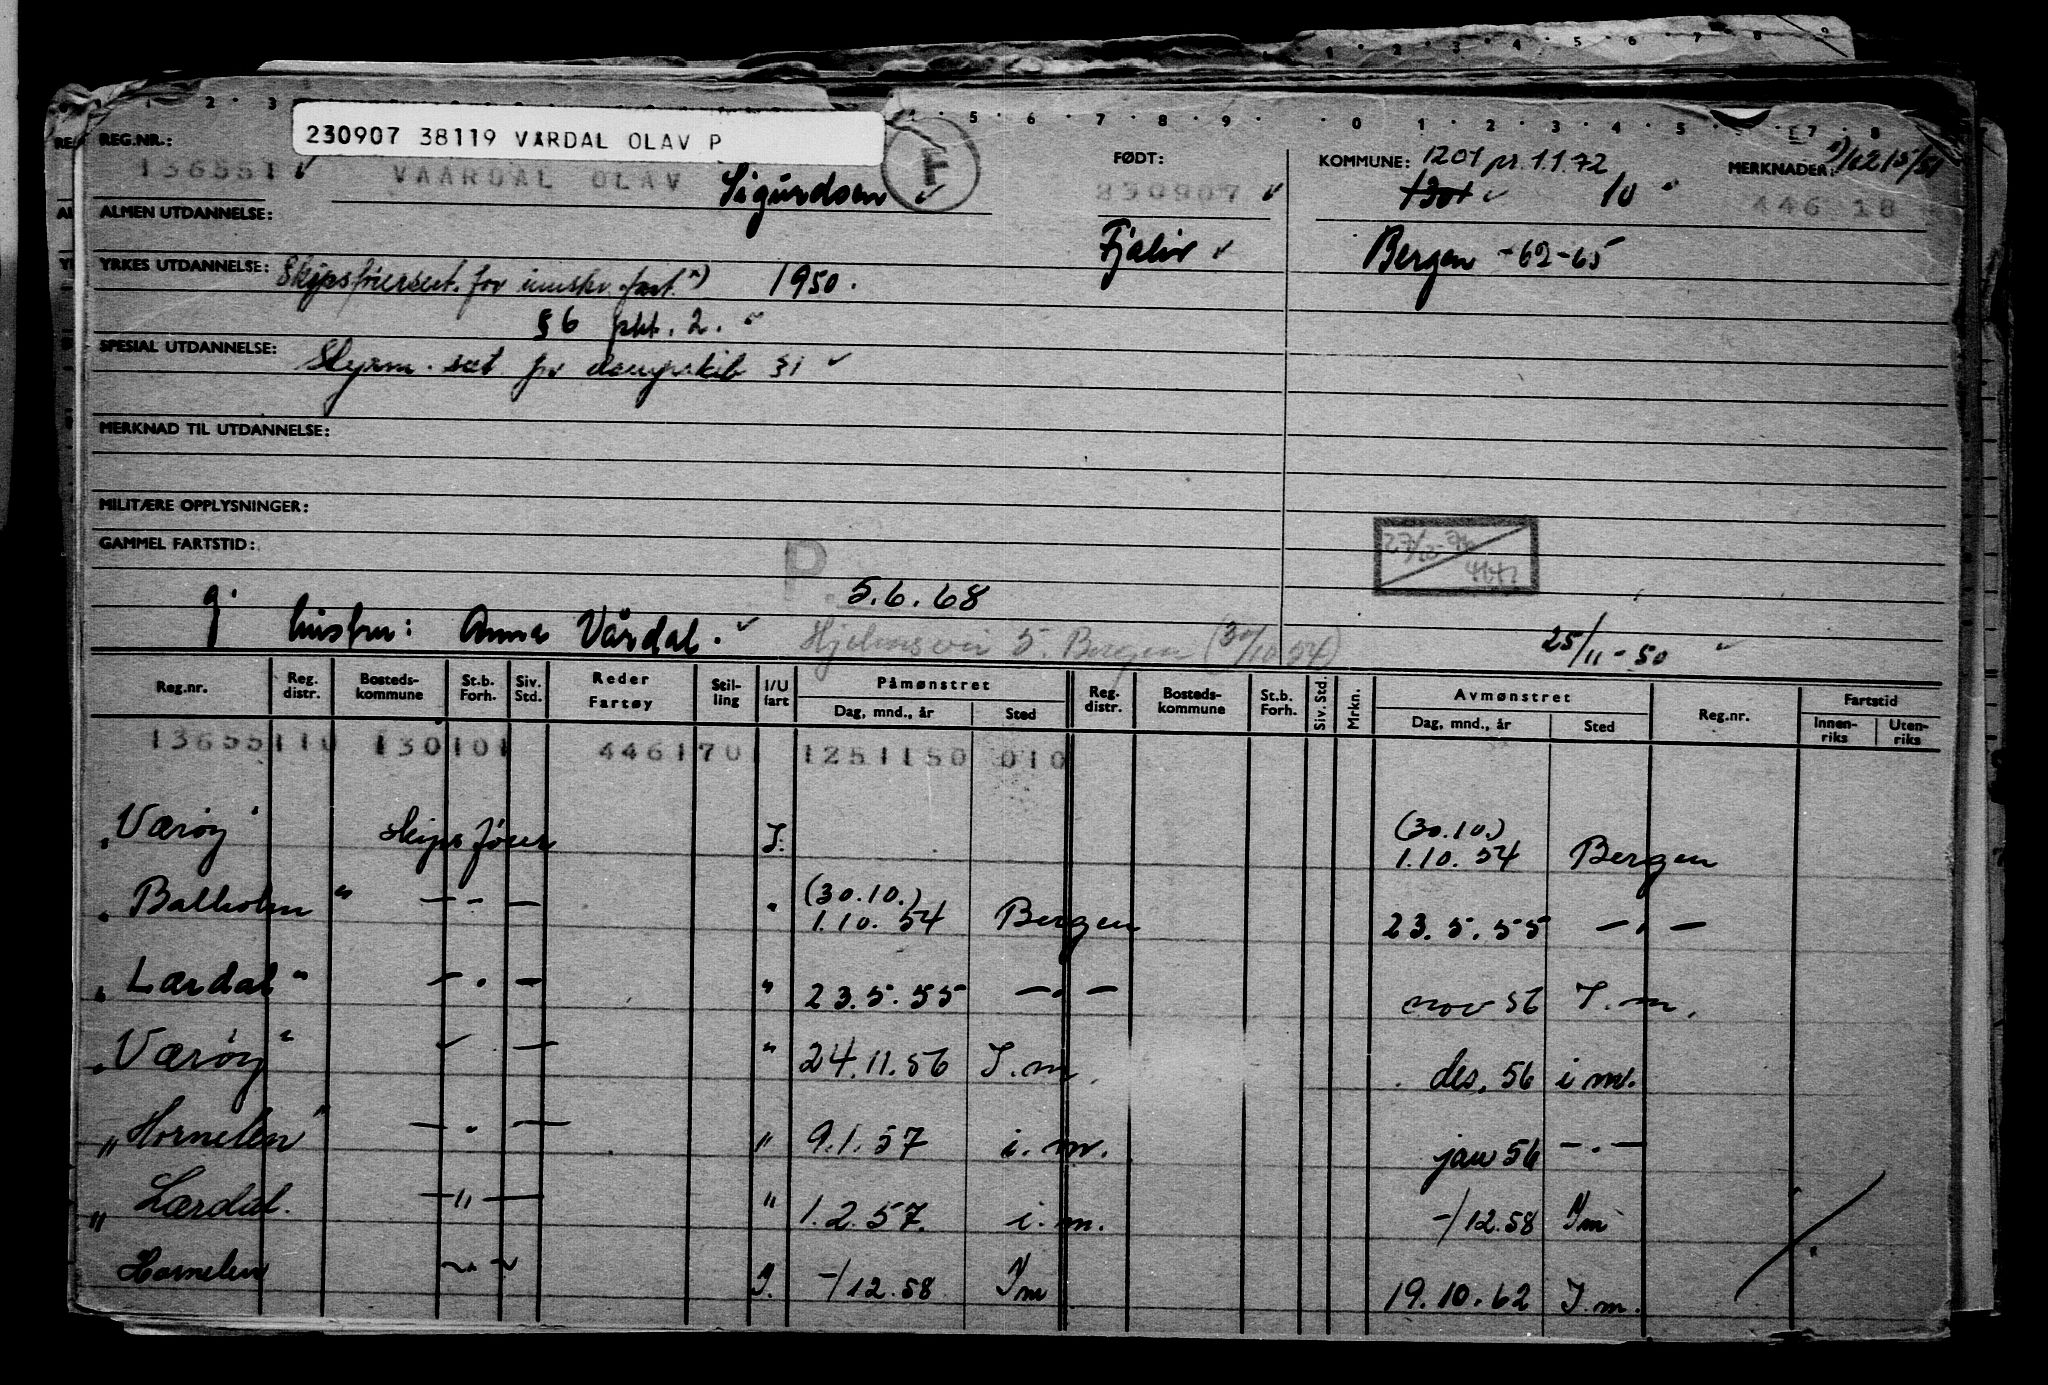 1 · 2 · 3
5 · 6 · 7 · 8 · 9 · · 0 · 1 · 2 · 3 · 4 · 5 · 7 · 8
230907 38119 VARDAL OLAV P
F
REG.NR.:
FØDT:
KOMMUNE: 1201 pr. 1.1.72
MERKNADER:
136551 VAARDAL OLAV Sigurdsen 230907 1301 10 446 18
ALMEN UTDANNELSE:
Fjaler
Bergen -62-65
YRKES UTDANNELSE: Skipsførersert. for innskr. fart. 1950.
§ 6 pkt. 2.
SPESIAL UTDANNELSE:
Styrm. sert for dampskib §1
MERKNAD TIL UTDANNELSE:
MILITÆRE OPPLYSNINGER:
GAMMEL FARTSTID:
P. 5.6.68
g. hustru: Anna Vårdal.
5. Bergen (30/10 54)
25/11-50
Reg.nr. Reg. distr. Bosteds-kommune St.b. Forh. Siv. Std. Reder Fartøy Stil-ling I/U fart Påmønstret Dag, mnd., år Sted Reg. distr. Bosteds-kommune St.b. Forh. Siv. Std. Mrkn. Avmønstret Dag, mnd., år Sted Reg.nr. Fartstid Innen-riks Uten-riks
13655110 130101 446170 1251150 010
"Værøy" Skipsfører I. (30.10.) 1.10.54 Bergen
"Balholm" — - — " (30.10.) 1.10.54 Bergen 23.5.55 — . —
"Lærdal" — . — " 23.5.55 — . — nov 56 I.m.
"Værøy" — " 24.11.56 I.m. des. 56 i m.
"Hornelen" — . — " 9.1.57 i.m. jan 56 — . —
" Lærdal. — " — " 1.2.57. i.m. -/12.58 Im
Hornelen — " — I. -/12.58 Im 19.10.62 I.m.